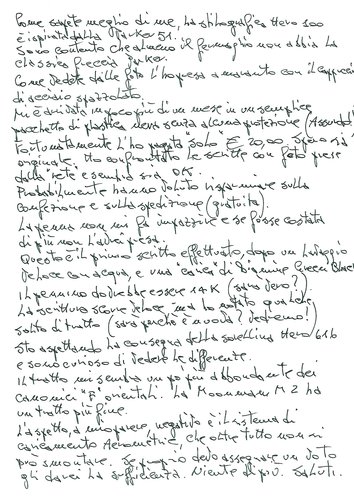 Come sapete meglio di me, la stilografica Hero 100
è ispirata dalla Parker 51.
Sono contento che almeno il fermaglio non abbia la
classica freccia Parker.
Come vedete dalle foto l'ho presa amaranto con il cappuccio
di acciaio spazzolato.
Mi è arrivata in poco più di un mese in un semplice
pacchetto di plastica nera senza alcuna protezione (Assurdo!
Fortunatamente l'ho pagata "solo" € 20,00. Spero sia
originale. Ho confrontato le scritte con foto prese
dalla rete e sembra sia OK.
Probabilmente hanno voluto risparmiare sulla
confezione e sulla spedizione (gratuita).
La penna non mi fa impazzire e se fosse costata
di più non l'avrei presa.
Questo è il primo scritto effettuato, dopo un lavaggio
veloce con acqua, e una carica di Diamine Green Black
Il pennino dovrebbe essere 14K (sarà vero?).
La scrittura scorre veloce, ma ho notato qualche
salto di tratto (sarà perché è nuova? vedremo!)
Sto aspettando la consegna della sorellina Hero 616
e sono curioso di vedere le differenze.
Il tratto mi sembra un po' più abbondante dei
canonici "F" orientali. La Moonman M2 ha
un tratto più fine.
L'aspetto, a mio parere, negativo è il sistema di
caricamento Aerometric, che oltre tutto non si
può smontare. Se proprio devo assegnare un voto
gli darei la sufficienza. Niente di più. Saluti.